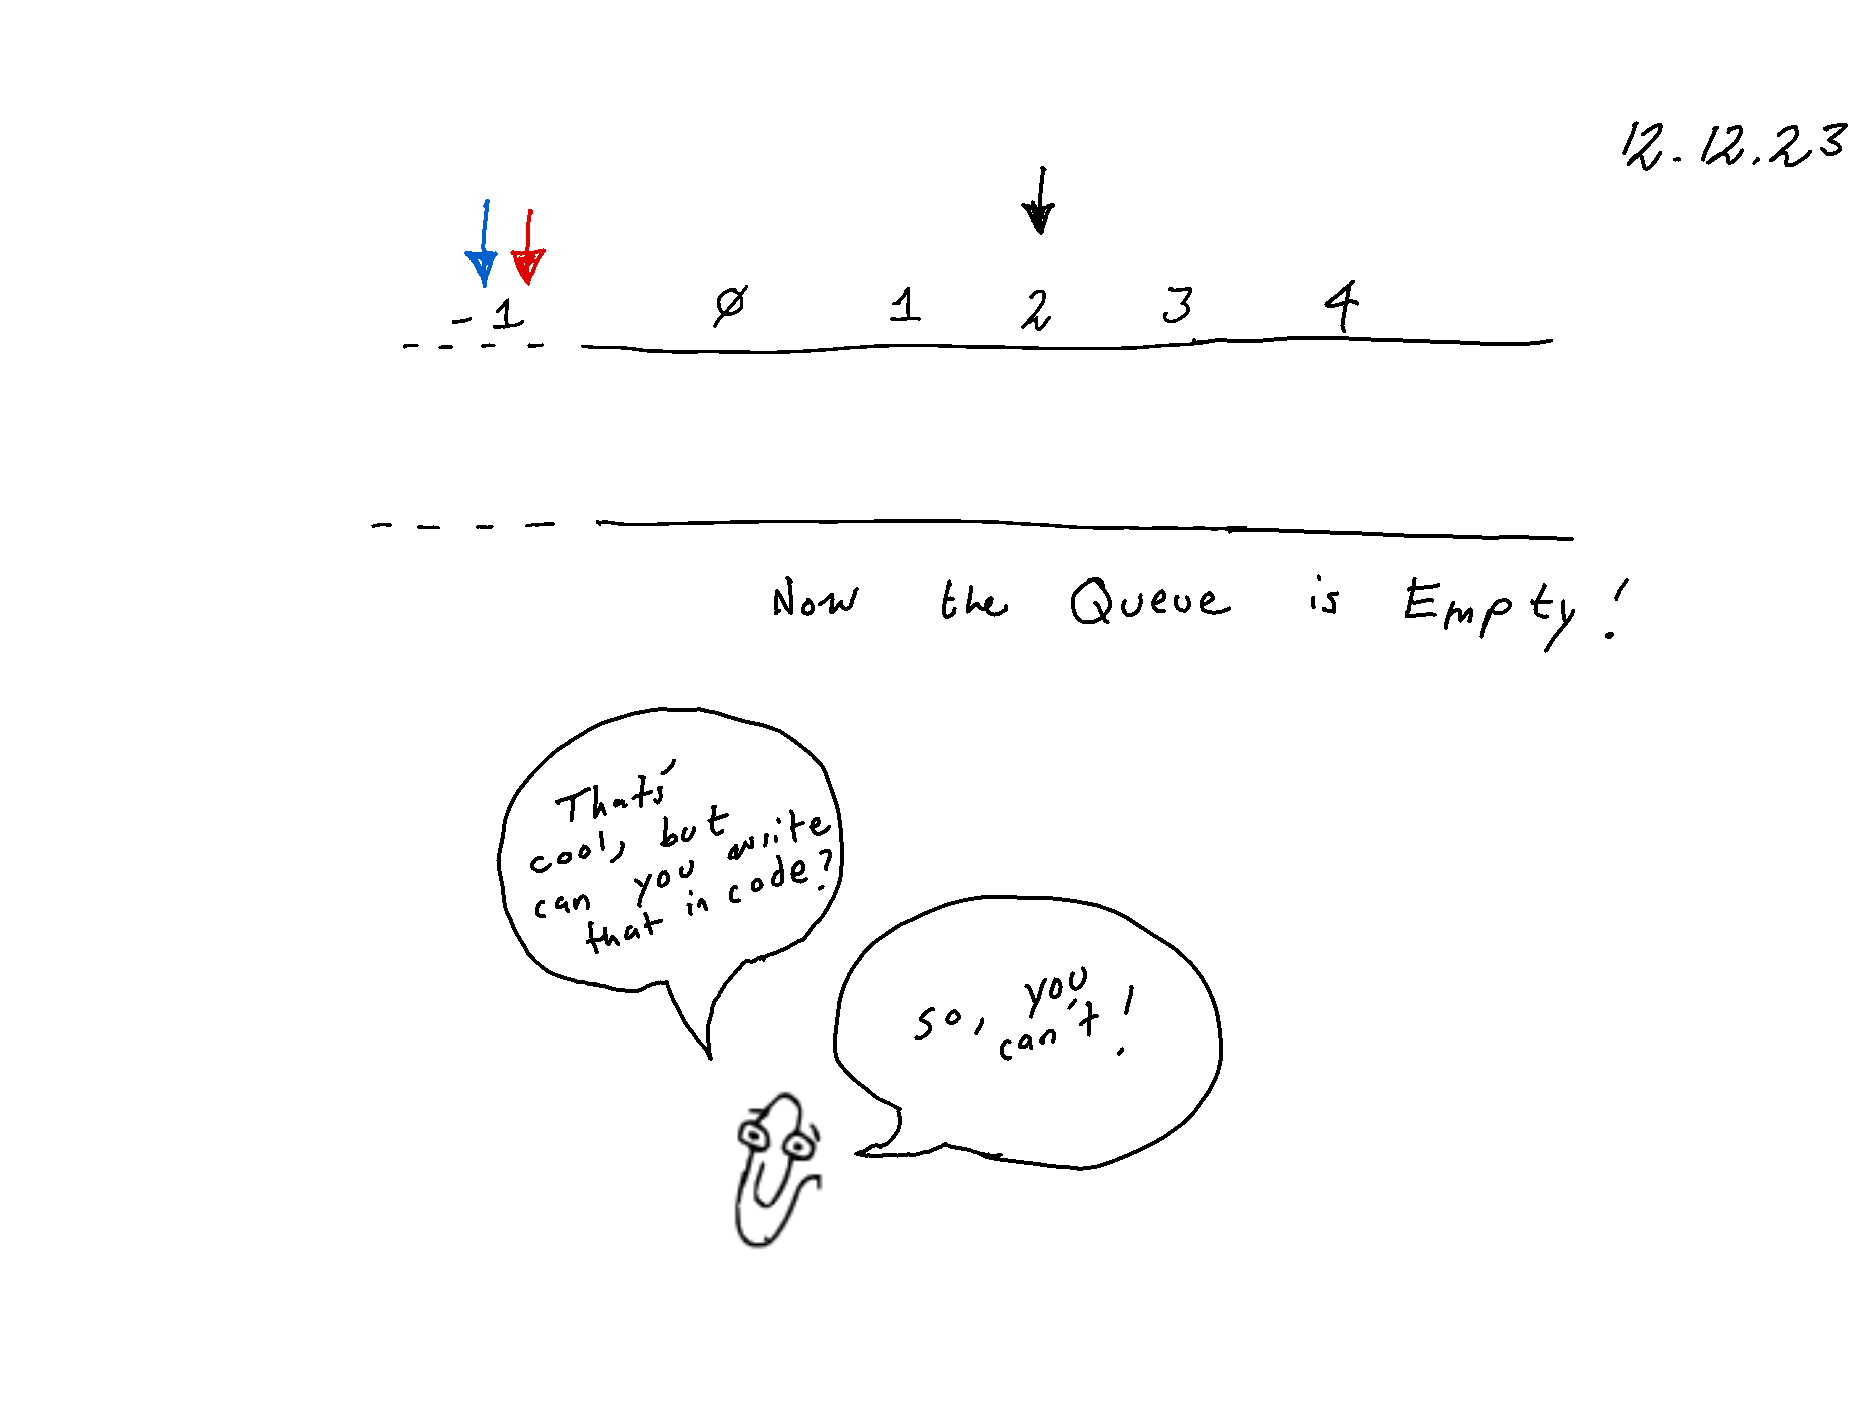 12.12.23
-1 0 1 2 3 4
Now the Queue is Empty!
Thats'
cool, but
can you write
that in code?
so, you
can't!